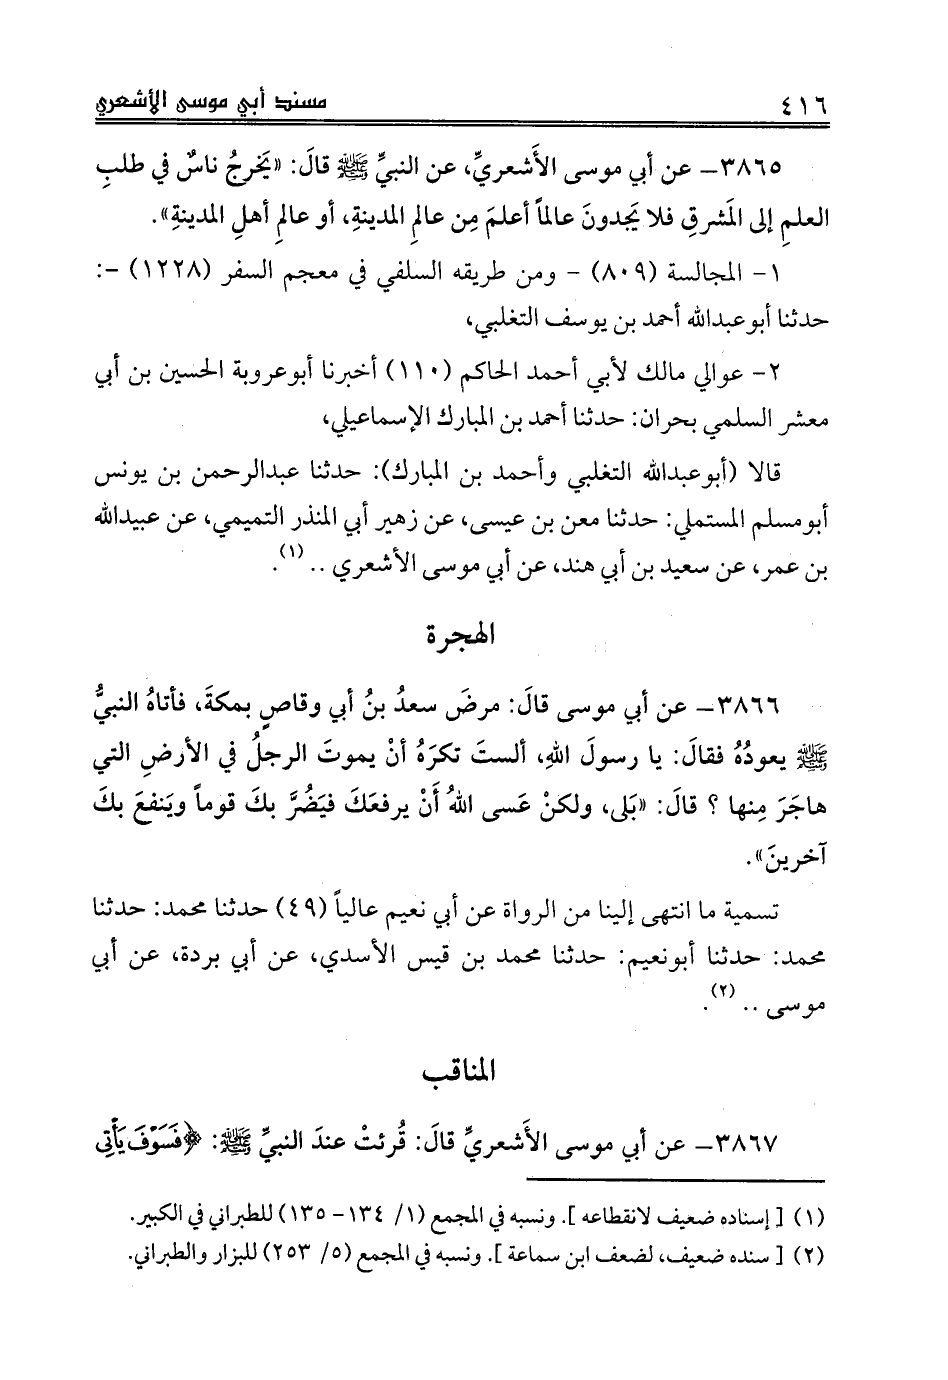 ٤١٦ مسند أبي موسى الأشعري
٣٨٦٥ـ عن أبي موسى الأَشعريِّ، عن النبيِّ ﷺ قالَ: «يَخرجُ ناسٌ في طلبِ
العلمِ إلى المَشرقِ فلا يَجدونَ عالماً أعلمَ مِن عالمِ المدينةِ، أو عالمِ أهلِ المدينةِ».
١- المجالسة (٨٠٩) - ومن طريقه السلفي في معجم السفر (١٢٢٨) -:
حدثنا أبوعبدالله أحمد بن يوسف التغلبي،
٢- عوالي مالك لأبي أحمد الحاكم (١١٠) أخبرنا أبوعروبة الحسين بن أبي
معشر السلمي بحران: حدثنا أحمد بن المبارك الإسماعيلي،
قالا (أبوعبدالله التغلبي وأحمد بن المبارك): حدثنا عبدالرحمن بن يونس
أبومسلم المستملي: حدثنا معن بن عيسى، عن زهير أبي المنذر التميمي، عن عبيدالله
بن عمر، عن سعيد بن أبي هند، عن أبي موسى الأشعري .. (١).
الهجرة
٣٨٦٦ـ عن أبي موسى قالَ: مرضَ سعدُ بنُ أبي وقاصٍ بمكةَ، فأتاهُ النبيُّ
ﷺ يعودُهُ فقالَ: يا رسولَ اللهِ، ألستَ تكرَهُ أنْ يموتَ الرجلُ في الأرضِ التي
هاجَرَ مِنها ؟ قالَ: «بَلى، ولكنْ عَسى اللهُ أَنْ يرفعَكَ فيَضُرَّ بكَ قوماً ويَنفعَ بكَ
آخرينَ».
تسمية ما انتهى إلينا من الرواة عن أبي نعيم عالياً (٤٩) حدثنا محمد: حدثنا
محمد: حدثنا أبونعيم: حدثنا محمد بن قيس الأسدي، عن أبي بردة، عن أبي
موسى .. (٢).
المناقب
٣٨٦٧ـ عن أبي موسى الأَشعريِّ قالَ: قُرئتْ عندَ النبيِّ ﷺ: ﴿فَسَوْفَ يَأْتِي
(١) [ إسناده ضعيف لانقطاعه ]. ونسبه في المجمع (١/ ١٣٤- ١٣٥) للطبراني في الكبير.
(٢) [ سنده ضعيف، لضعف ابن سماعة ]. ونسبه في المجمع (٥/ ٢٥٣) للبزار والطبراني.